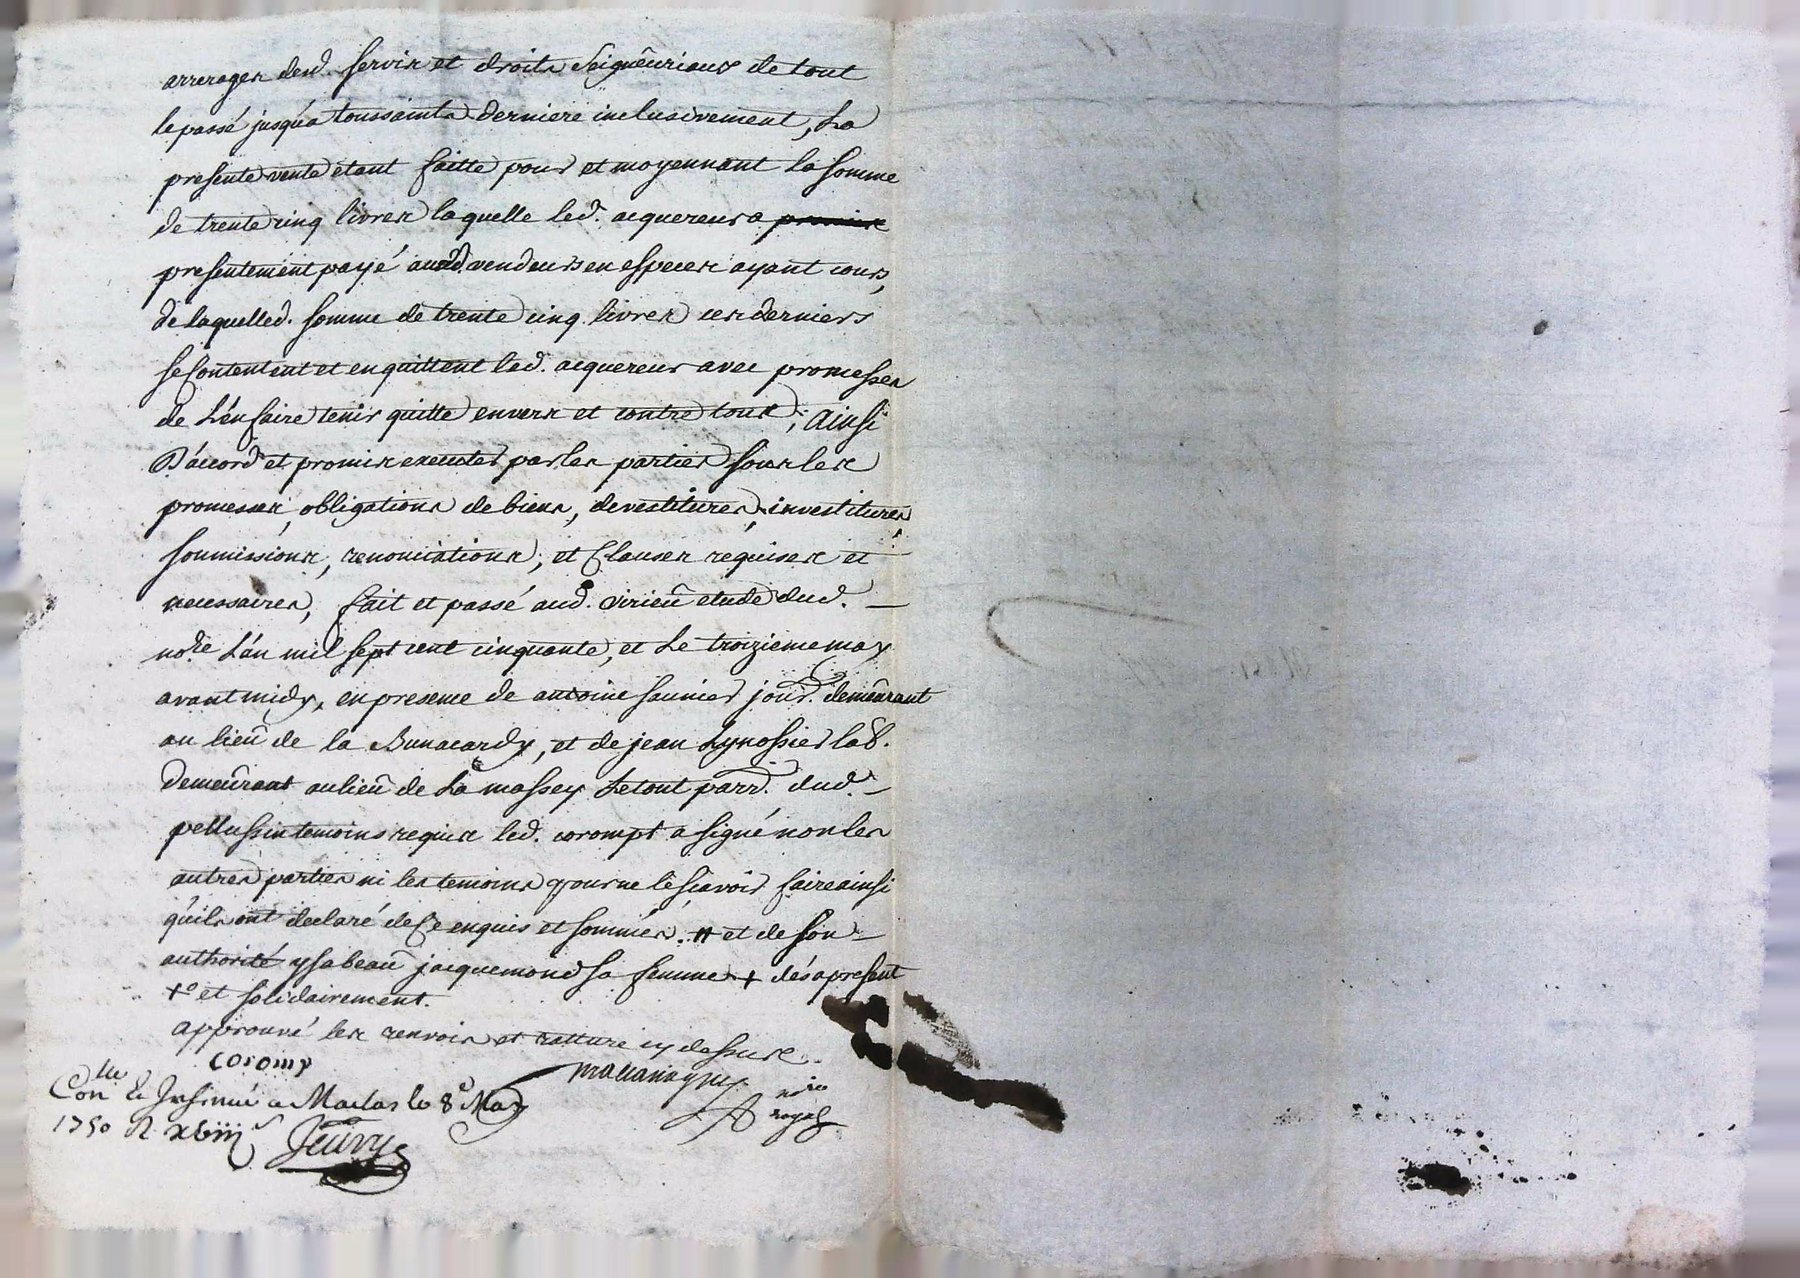 arrerages desd. servis et droits seigneuriaux de tout
le passé jusqu'a toussaints derniere inclusivement, La
presente vente etant faitte pour et moyennant la somme
de trente cinq livres laquelle led. acquereur a promis
presentement payé auxd. vendeurs en especes ayant cours,
de laquelled. somme de trente cinq livres ces derniers
se Contentent et en quittent led. acquereur avec promesses
de L'en faire tenir quitte envers et contre tous; ainsi
D'accord et promis executer par les parties sous les
promesses, obligations de biens, devestitures, investitures
soumissions, renonciations, et Clauses requises et
necessaires, fait et passé aud. virieu etude dud. —
nore. L'an mil sept cent cinquante, et Le troizieme may
avant midy, en presence de antoine saunier jour. demeurant
au lieu de la Bunacardy, et de jean Lynossier lab.
Demeurant au lieu de La massey Le tout parr. dud. —
pellussin temoins requis led. corompt a signé non les
autres parties ni les temoins pour ne le sçavoir faire ainsi
qu'ils ont declaré de Ce enquis et sommés. # et de son —
authorité ysabeau jacquemond sa femme + dés a present
+o et solidairement.
approuvé les renvois et ratture cy dessus.
coromp
Conlle & Insinué a Maclas le 8e May
1750 R xviii s
nore
royal